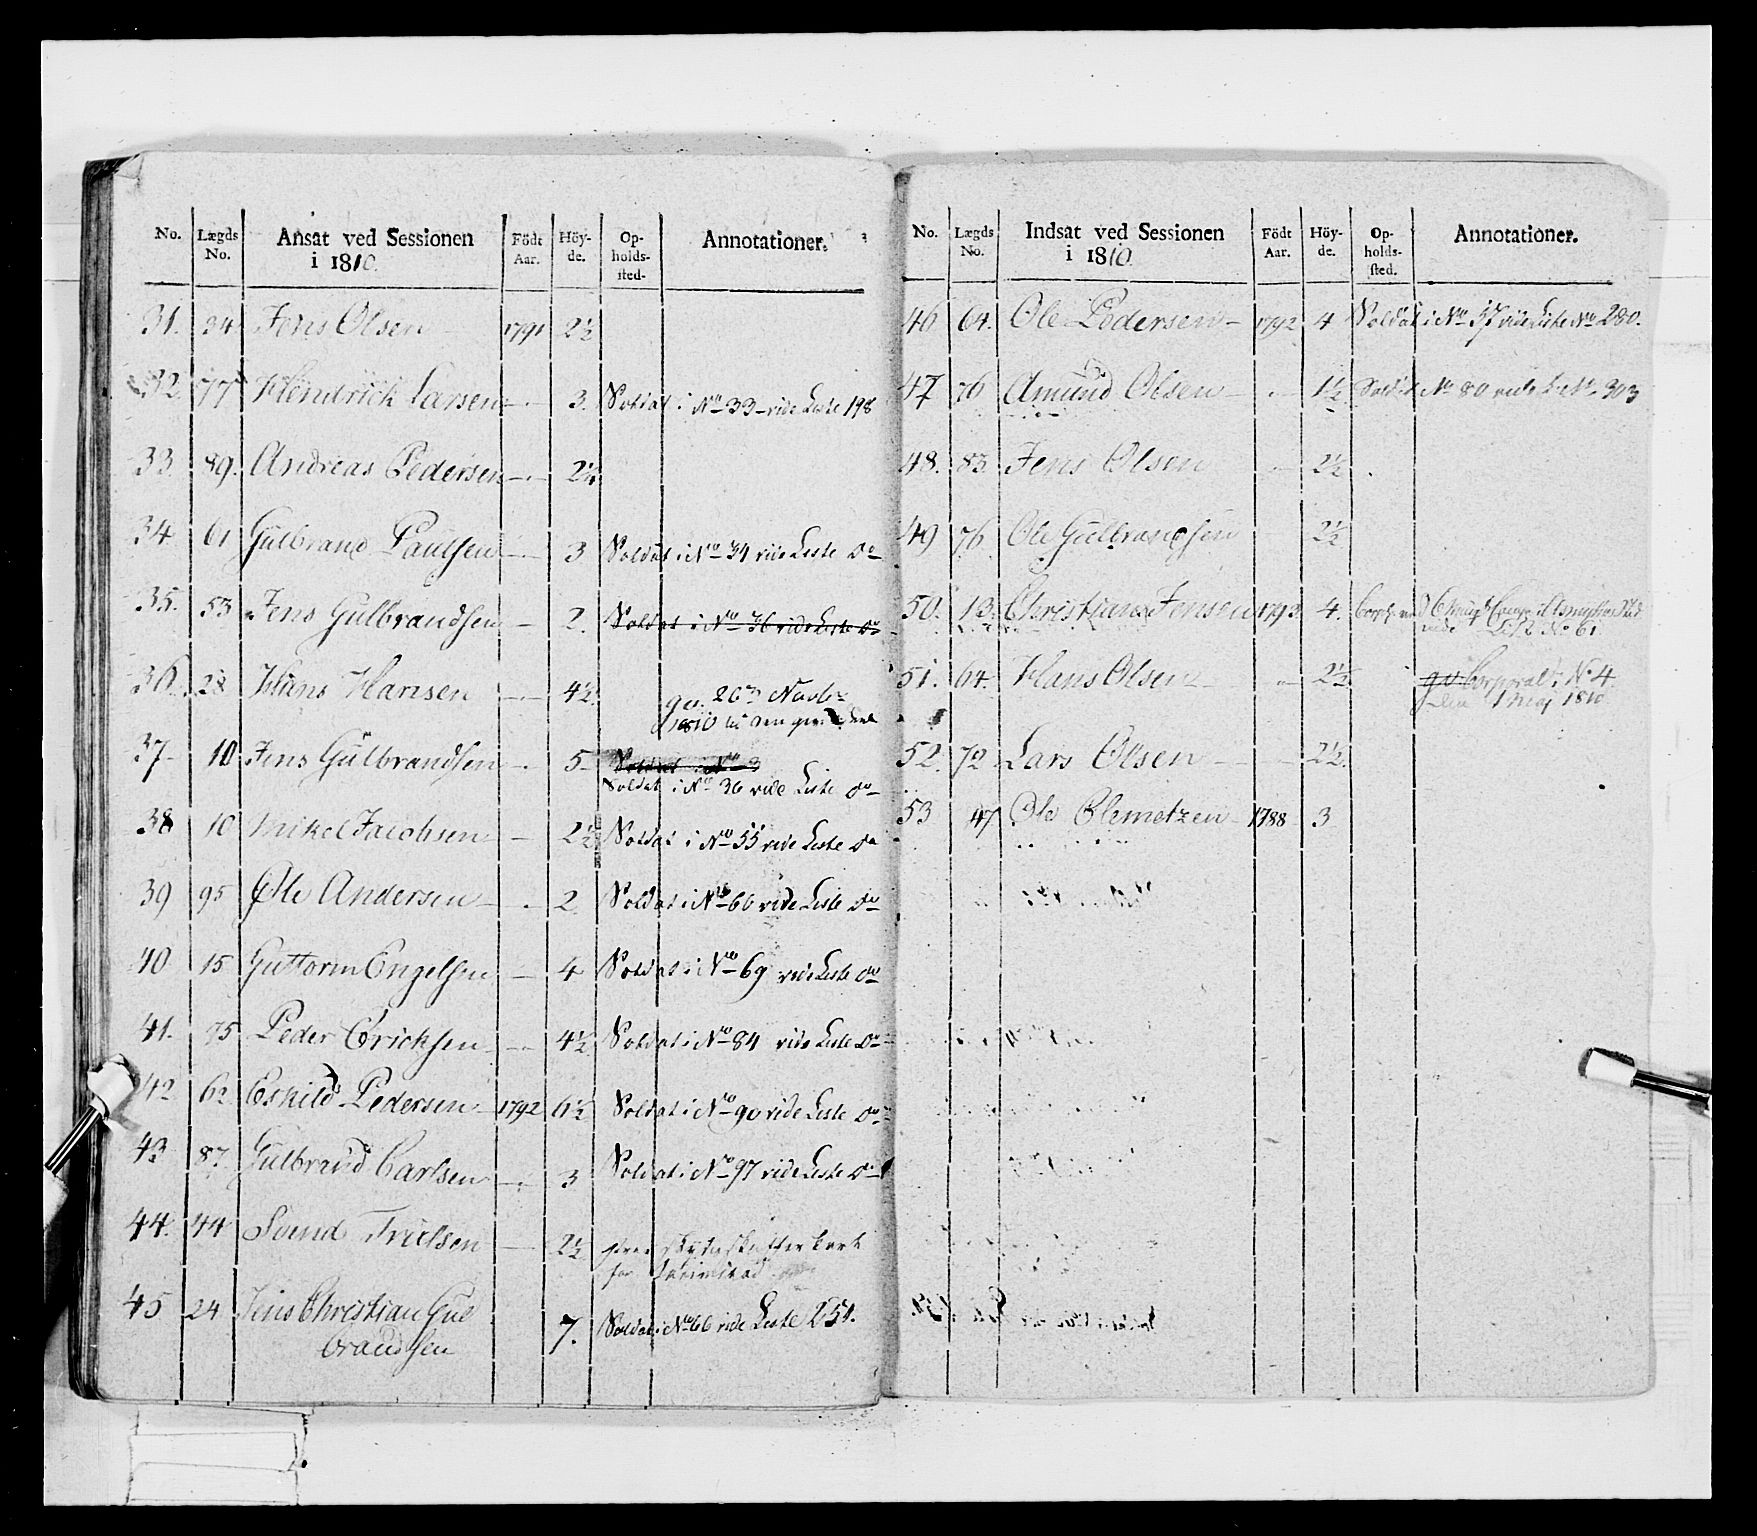 No. Lægds No. Ansat ved Sessionen i 1810. Födt Aar. Höy-de. Op-holds-sted- Annotationer.
31. 34 Jens Olsen 1791 2½
32. 77 Hendrick Larsen — 3. Soldat i No 33 vide Liste 198
33. 89. Andreas Pedersen — 2½
34. 61 Gulbrand Paulsen — 3 Soldat i No 34 vide Liste do
35. 53 Jens Gulbrandsen — 2. Soldat i No 36 vide Liste do
36. 28 Hans Hansen — 4½. 26
1810
37 10 Jens Gulbrandsen — 5 Soldat i No 3
Soldat i No 36 vide Liste do
38 10 Mikel Jacobsen — 2½ Soldat i No 55 vide Liste do
39 95 Ole Andersen — 2. Soldat i No 60 vide Liste do
40 15 Guttorm Engelsen — 4 Soldat i No 69 vide Liste do
41. 75 Peder Ericksen — 4½ Soldat i No 84 vide Liste do
42 62 Eskild Pedersen 1792 6½ Soldat i No 90 vide Liste do
43 87. Gulbrand Carlsen — 3 Soldat i No 97 vide Liste do
44. 44 Svend — 2½
for
45 24 Jens Christian Gul
brandsen 7. Soldat i No 66 vide Liste 251.
No. Lægds No. Indsat ved Sessionen i 1810. Födt Aar. Höy-de. Op-holds-sted. Annotationer.
46 64. Ole Pedersen 1792 4 Soldat i No 57 vide Liste No 280.
47 76 Amund Olsen — 1½ Soldat No 80 vide L. No 303
48. 83. Jens Olsen — 2½
49 76 Ole Gulbrandsen 2½
50. 13. Christian Jensen 1793 4.
vide Liste No 61
51. 64. Hans Olsen — 2½ Corporal i No 4
den 1 Maj 1810
52. 72 Lars Olsen — 2½.
53 47 Ole Clemetzen 1788 3